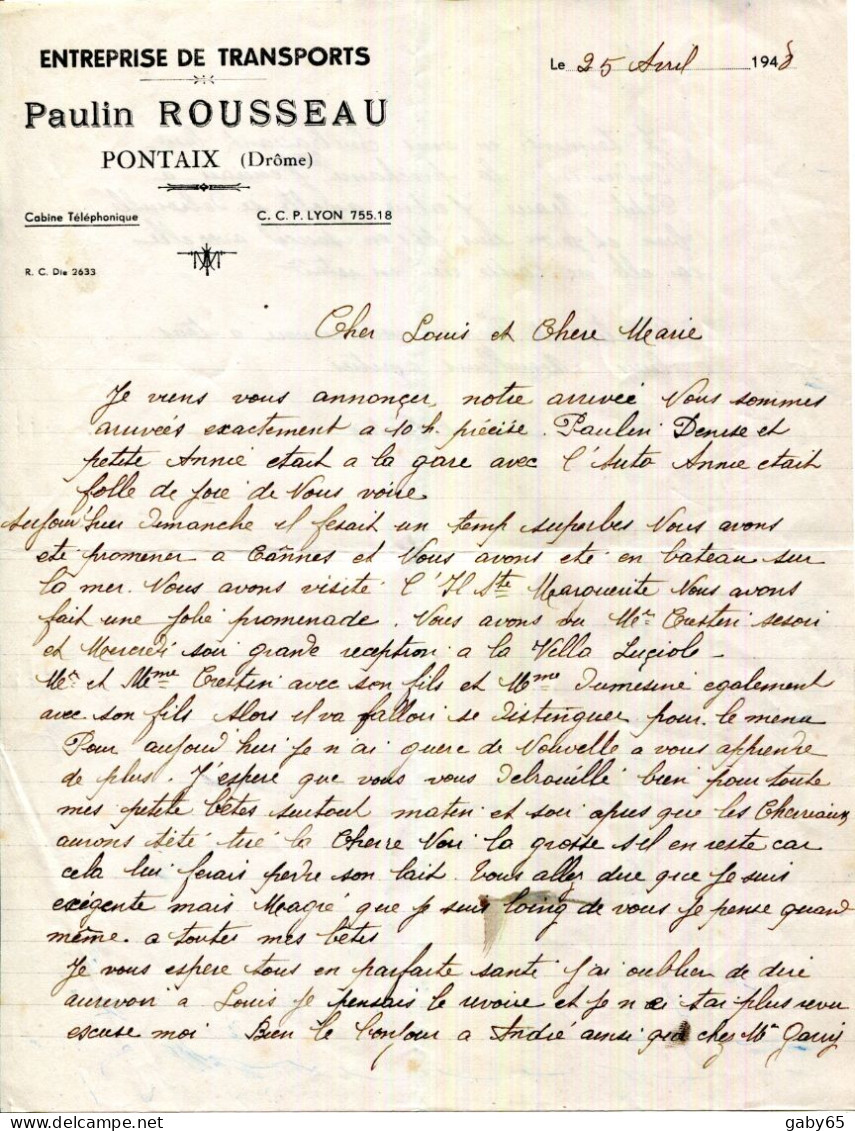 ENTREPRISE DE TRANSPORTS
Paulin ROUSSEAU
PONTAIX (Drôme)
Cabine Téléphonique C. C. P. LYON 755.18
R. C. Die 2633
Le 25 Avril 1948
Cher Louis et Chere Marie
Je viens vous annonçer notre arriveé Nous sommes
arriveés exactement a 10 h. précise. Paulin Denise et
petite Annie etait a la gare avec l'Auto Annie etait
folle de joie de Nous voire
Aujour'hui Dimanche il fesait un temp superbes Nous avons
eté promener a Cannes et Nous avons eté en bateau sur
la mer. Nous avons visité l'Il Ste Marguerite Nous avons
fait une jolie promenade. Nous avons vu Mr Cresten sesoir
et Mercredi soir grande reception a la Villa Luçiole -
Mr et Mme Cresten avec son fils et Mme Dumesine egalement
avec son fils Alors il va falloir se distinguer pour le menu
Pour aujourd'hui je n'ai guere de Nouvelle a vous apprendre
de plus. J'espere que vous vous debrouillé bien pour toute
mes petite bêtes surtout matin et soir apres que les Chevreaux
aurons tété tiré la Chevre Noir la grosse s'il en reste car
cela lui ferais perdre son lait. Vous allez dire que je suis
exégente mais Magré que je suis loing de vous je pense quand
même a toutes mes bêtes
Je vous espere tous en parfaite santé j'ai oublier de dire
aurevoir a Louis je pensais le revoire et je n'ai t'ai plus revu
escuse moi Bien le bonjour a André ainsi que chez Mr
gaby65